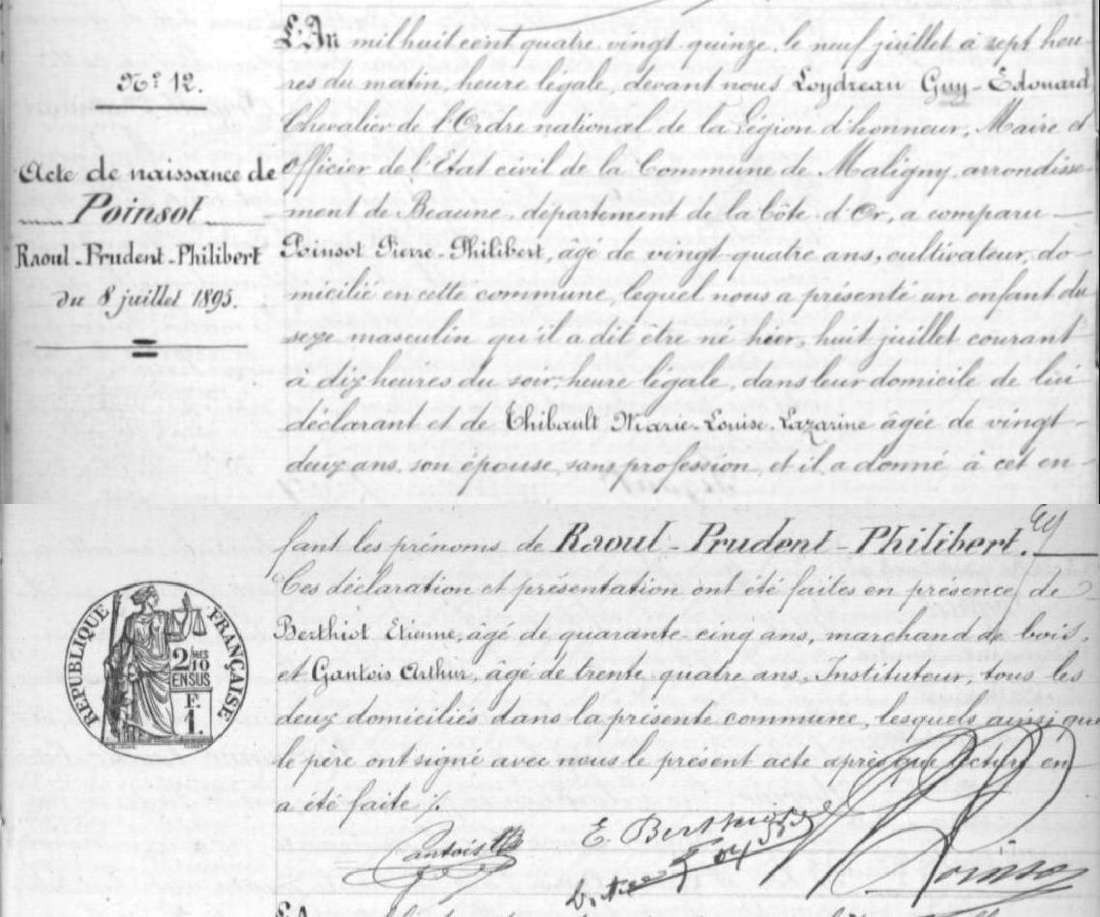 N° 12.
Acte de naissance de
Poinsot
Raoul-Prudent-Philibert
du 8 juillet 1895.
L'An mil huit cent quatre vingt quinze, le neuf juillet à sept heu-
res du matin, heure légale, devant nous Loydreau Guy-Edouard
Chevalier de l'Ordre national de la Légion d'honneur, Maire et
Officier de l'Etat civil de la Commune de Maligny, arrondisse-
ment de Beaune, département de la Côte d'Or, a comparu
Poinsot Pierre-Philibert, âgé de vingt quatre ans, cultivateur, do-
micilié en cette commune, lequel nous a présenté un enfant du
sexe masculin qu'il a dit être né hier, huit juillet courant
à dix heures du soir, heure légale, dans leur domicile de lui
déclarant et de Thibault Marie-Louise-Lazarine âgée de vingt
deux ans, son épouse, sans profession, et il a donné à cet en-
fant les prénoms de Raoul-Prudent-Philibert.
Ces déclaration et présentation ont été faites en présence de
Berthiot Etienne, agé de quarante cinq ans, marchand de bois,
et Gantois Arthur, âgé de trente quatre ans, Instituteur, tous les
deux domiciliés dans la présente commune, lesquels ainsi que
le père ont signé avec nous le présent acte après que lecture en
a été faite ./.
RÉPUBLIQUE FRANÇAISE
2/10
EN SUS
F.
1.
Gantois
E. Berthiot
Poinsot